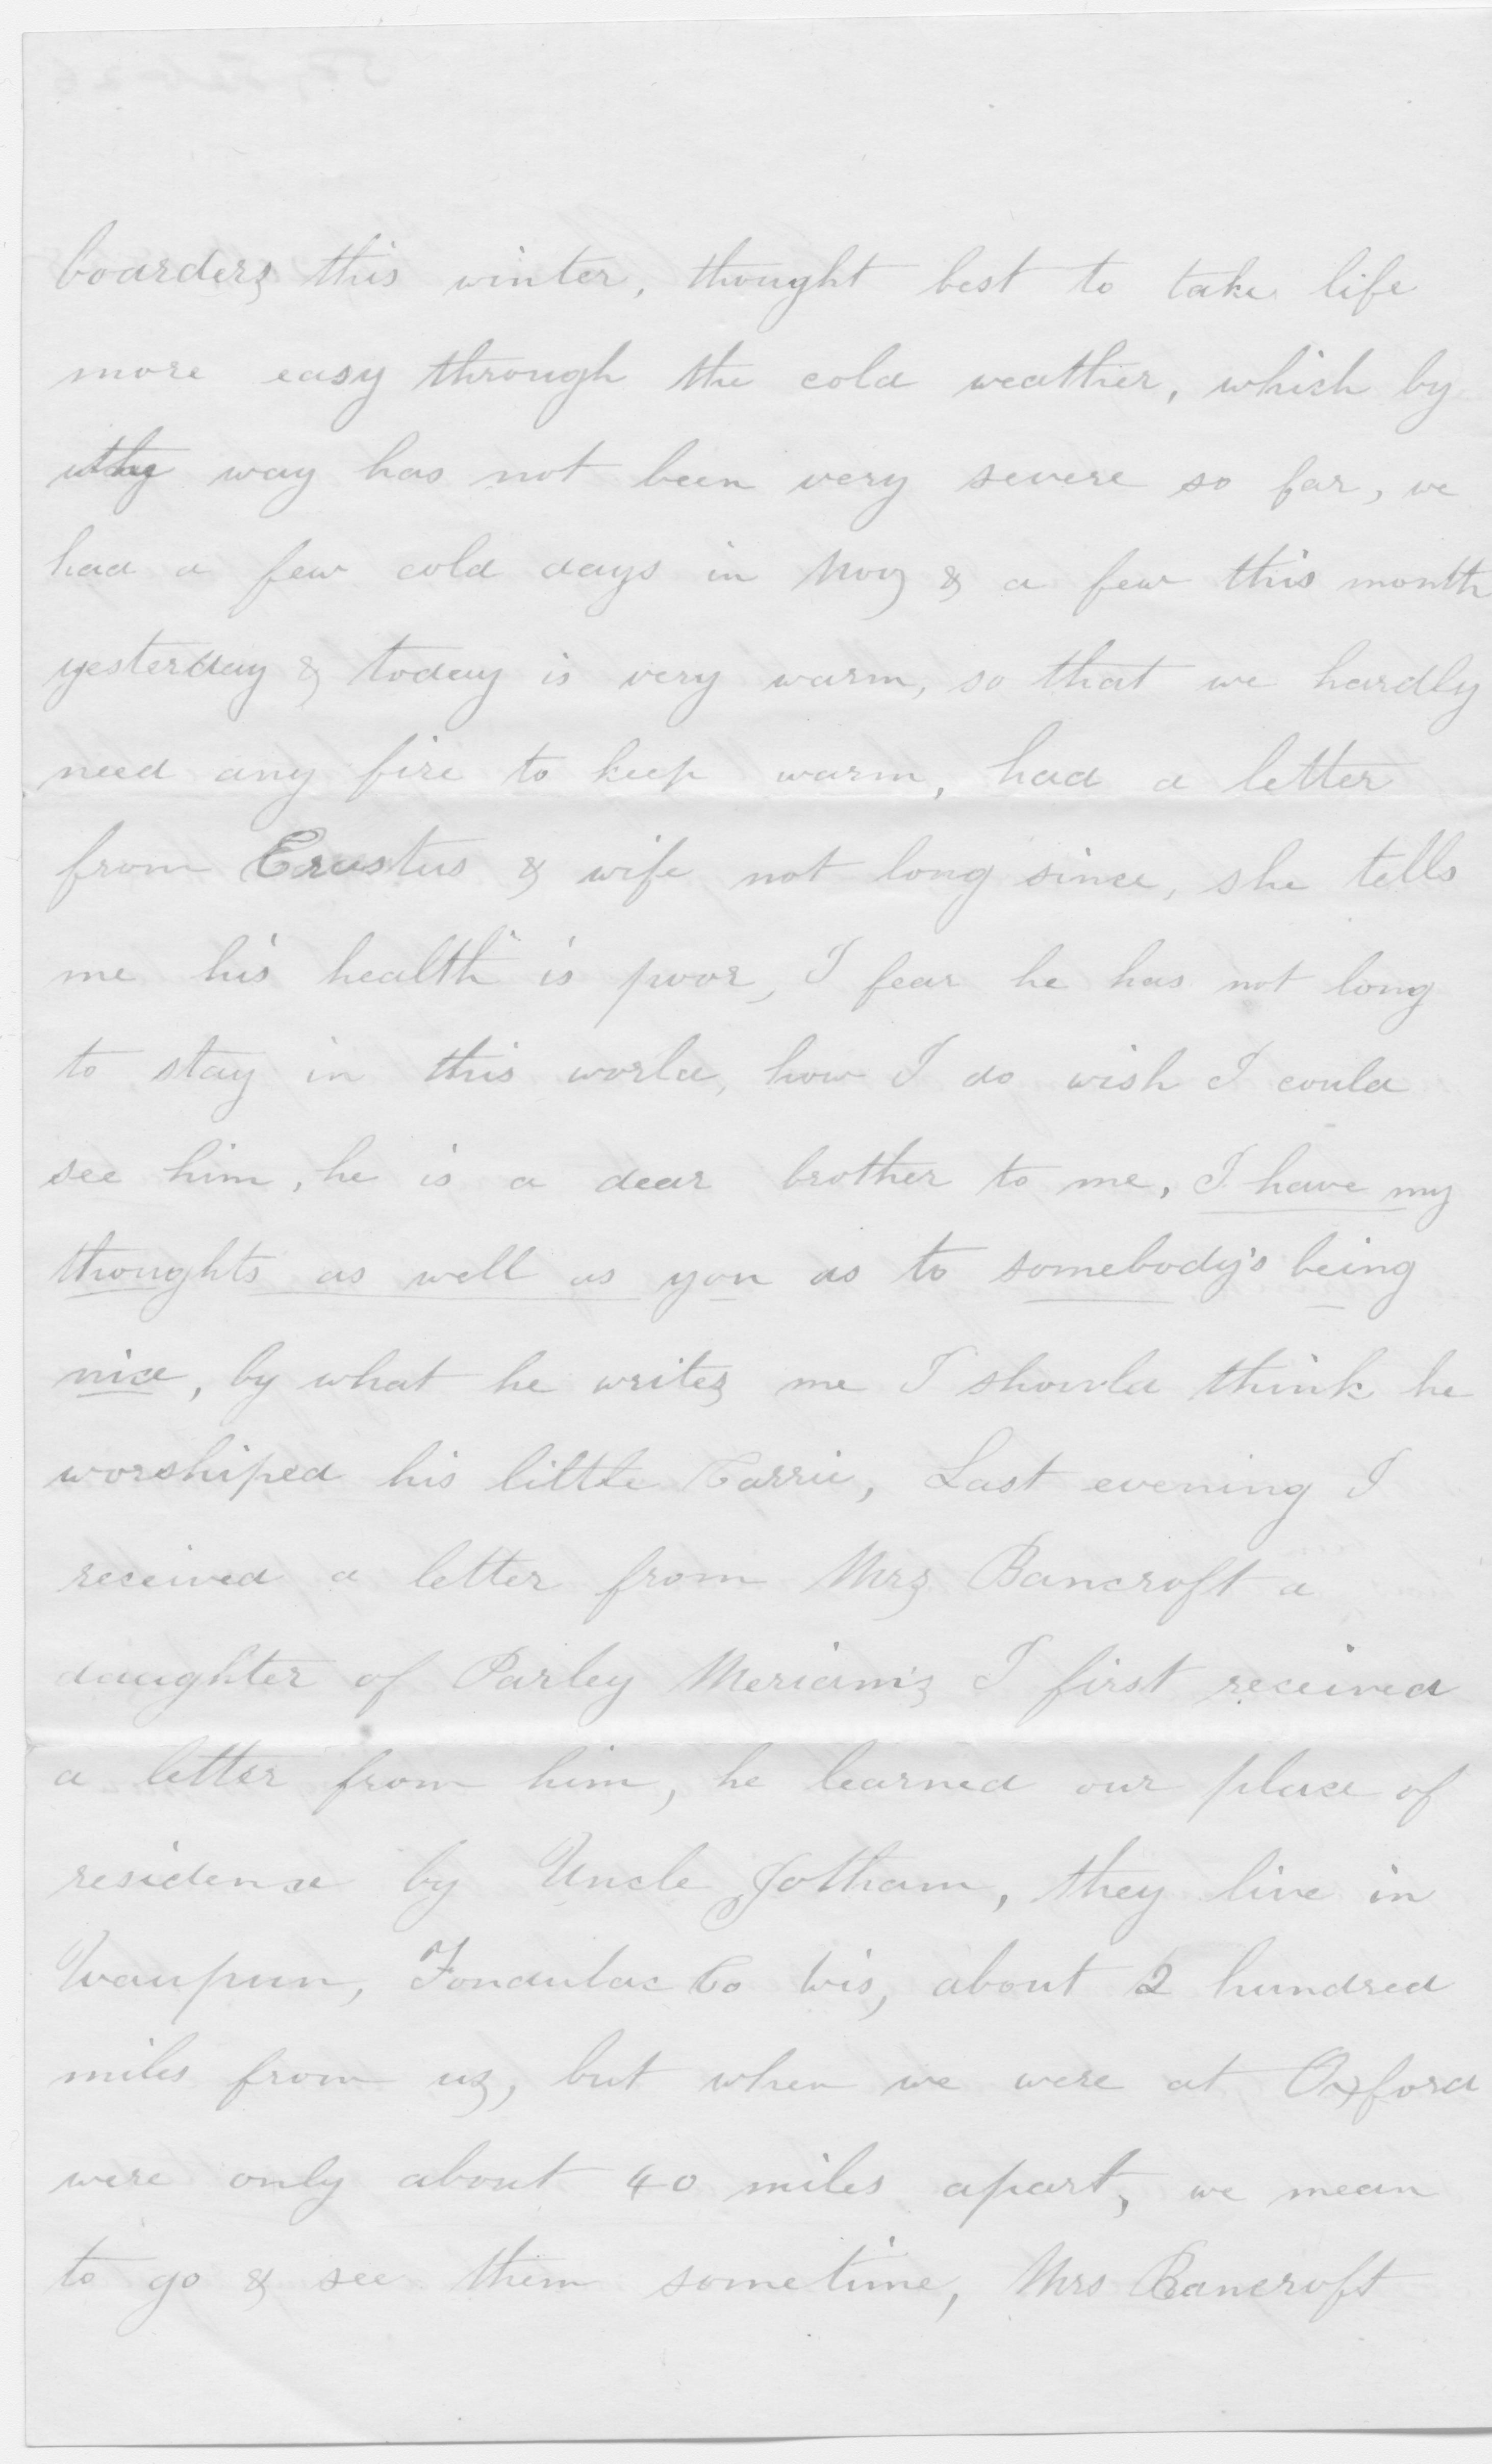 boarders this winter, thought best to take life
more easy through the cold weather, which by
the way has not been very severe so far, we
had a few cold days in Nov & a few this month
yesterday & today is very warm, so that we hardly
need any fire to keep warm, had a letter
from Erastus & wife not long since, she tells
me his health is poor, I fear he has not long
to stay in this world, how I do wish I could
see him, he is a dear brother to me, I have my
thoughts as well as you as to somebody's being
nice, by what he writes me I should think he
worshiped his little Carrie, Last evening I
received a letter from Mrs Bancroft a
daughter of Parley Meriam's I first received
a letter from him, he learned our place of
residence by Uncle Jotham, they live in
Waupun, Fondulac Co Wis, about 2 hundred
miles from us, but when we were at Oxford
were only about 40 miles apart, we mean
to go & see them sometime, Mrs Bancroft